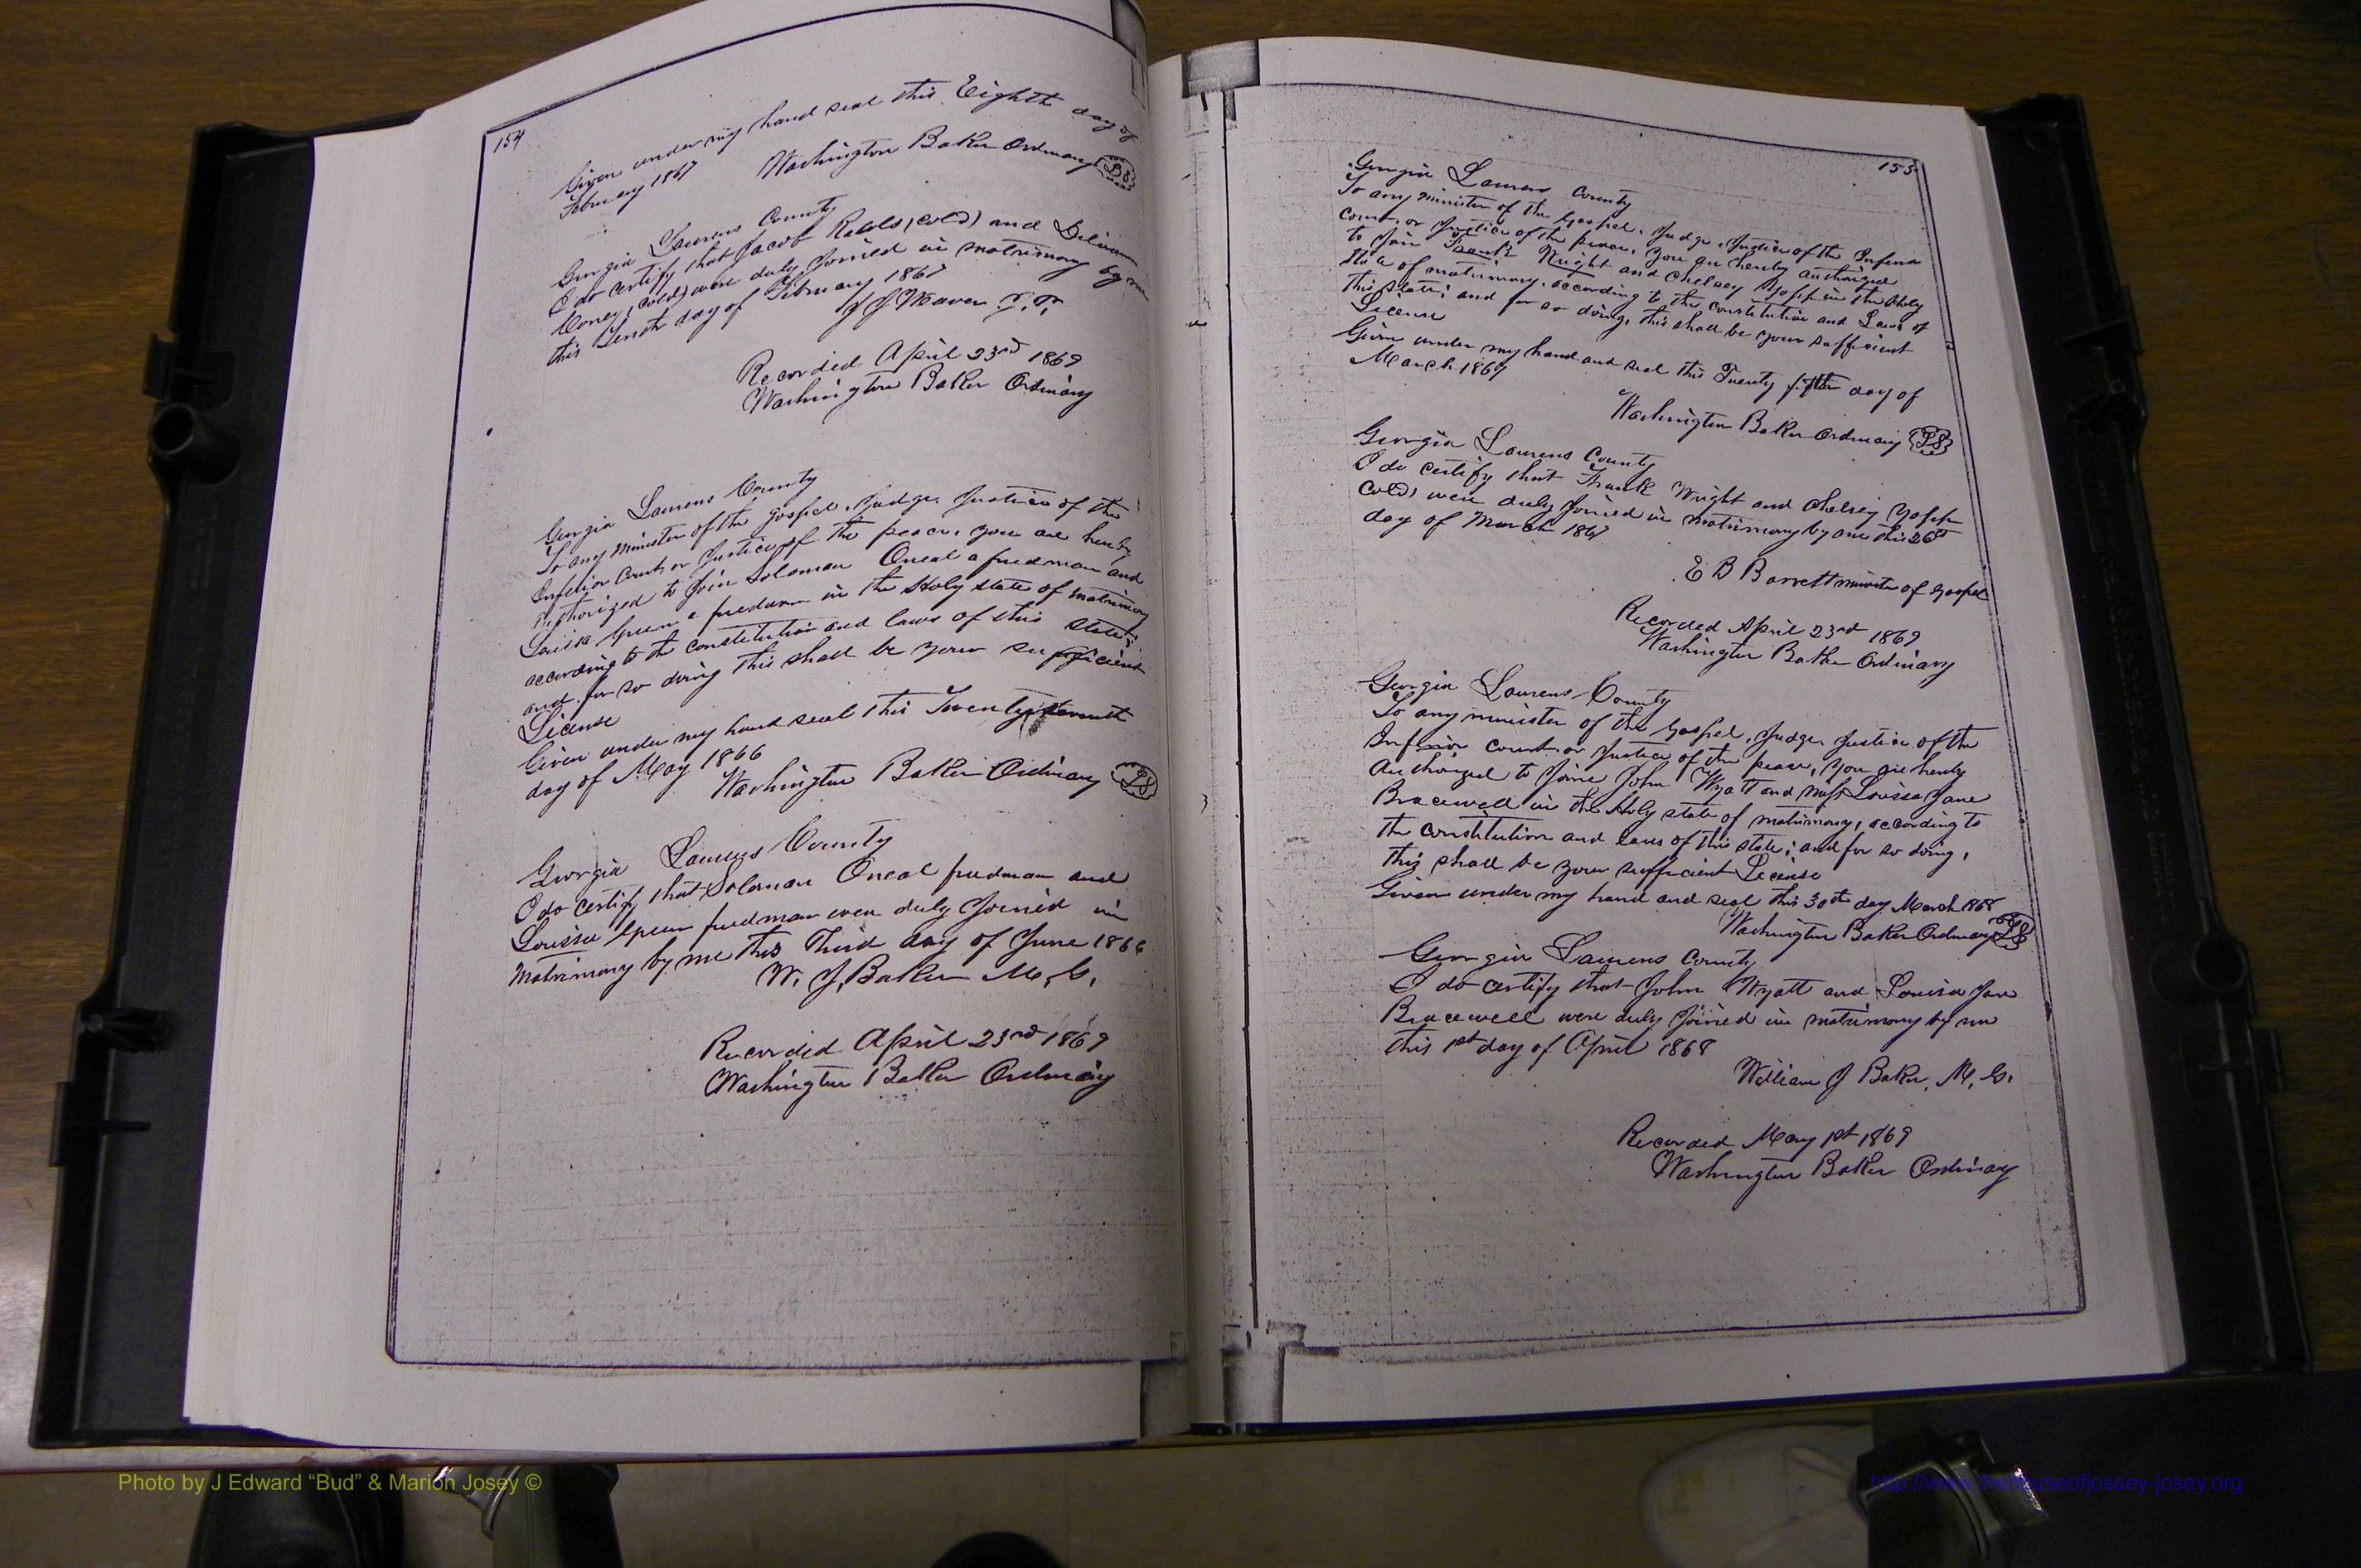 154
Given under my hand seal this Eighth day of
February 1867
Washington Baker Ordinary LS
Georgia Laurens County
I do certify that Jacob (cold) and
(cold) were duly Joined in matrimony by me
this Tenth day of February 1867
Recorded April 23rd 1869
Washington Baker Ordinary
Georgia Laurens County
To any Minister of the gospel, Judge, Justice of the
Inferior Court or Justice of the peace, you are hereby
authorized to Join Soloman Oneal a freedman and
a freedman in the Holy state of matrimony
according to the constitution and laws of this state;
and for so doing this shall be your sufficient
License
Given under my hand seal this Twenty seventh
day of May 1866
Washington Baker Ordinary LS
Georgia Laurens County
I do certify that Soloman Oneal freedman and
Louisa freedman were duly Joined in
Matrimony by me this Third day of June 1866
W. J. Baker M. G.
Recorded April 23rd 1869
Washington Baker Ordinary
155
Georgia Laurens County
To any minister of the Gospel, Judge, Justice of the Inferior
Court, or Justice of the peace, you are hereby authorized
to Join Frank Wright and Chelsey Yopp in the Holy
State of matrimony, according to the Constitution and Laws of
this State; and for so doing, this shall be your sufficient
License
Given under my hand and seal this Twenty fifth day of
March 1867
Washington Baker Ordinary LS
Georgia Laurens County
I do certify that Frank Wright and Chelsey Yopp
cold, were duly Joined in matrimony by me this 26th
day of March 1867
E B Barrett minister of gospel
Recorded April 23rd 1869
Washington Baker Ordinary
Georgia Laurens County
To any minister of the Gospel, Judge, Justice of the
Inferior court, or Justice of the peace, You are hereby
Authorized to Joine John Wyatt and Miss Louisa Jane
Bracewell in the Holy state of matrimony, according to
the constitution and laws of this state; and for so doing,
this shall be your sufficient License
Given under my hand and seal this 30th day March 1868
Washington Baker Ordinary LS
Georgia Laurens County
I do certify that John Wyatt and Louisa Jane
Bracewell were duly Joined in matrimony by me
this 1st day of April 1868
William J Baker, M, G,
Recorded May 1st 1869
Washington Baker Ordinary
Photo by J Edward “Bud” & Marion Josey ©
http://www.thehouseofjossey-josey.org